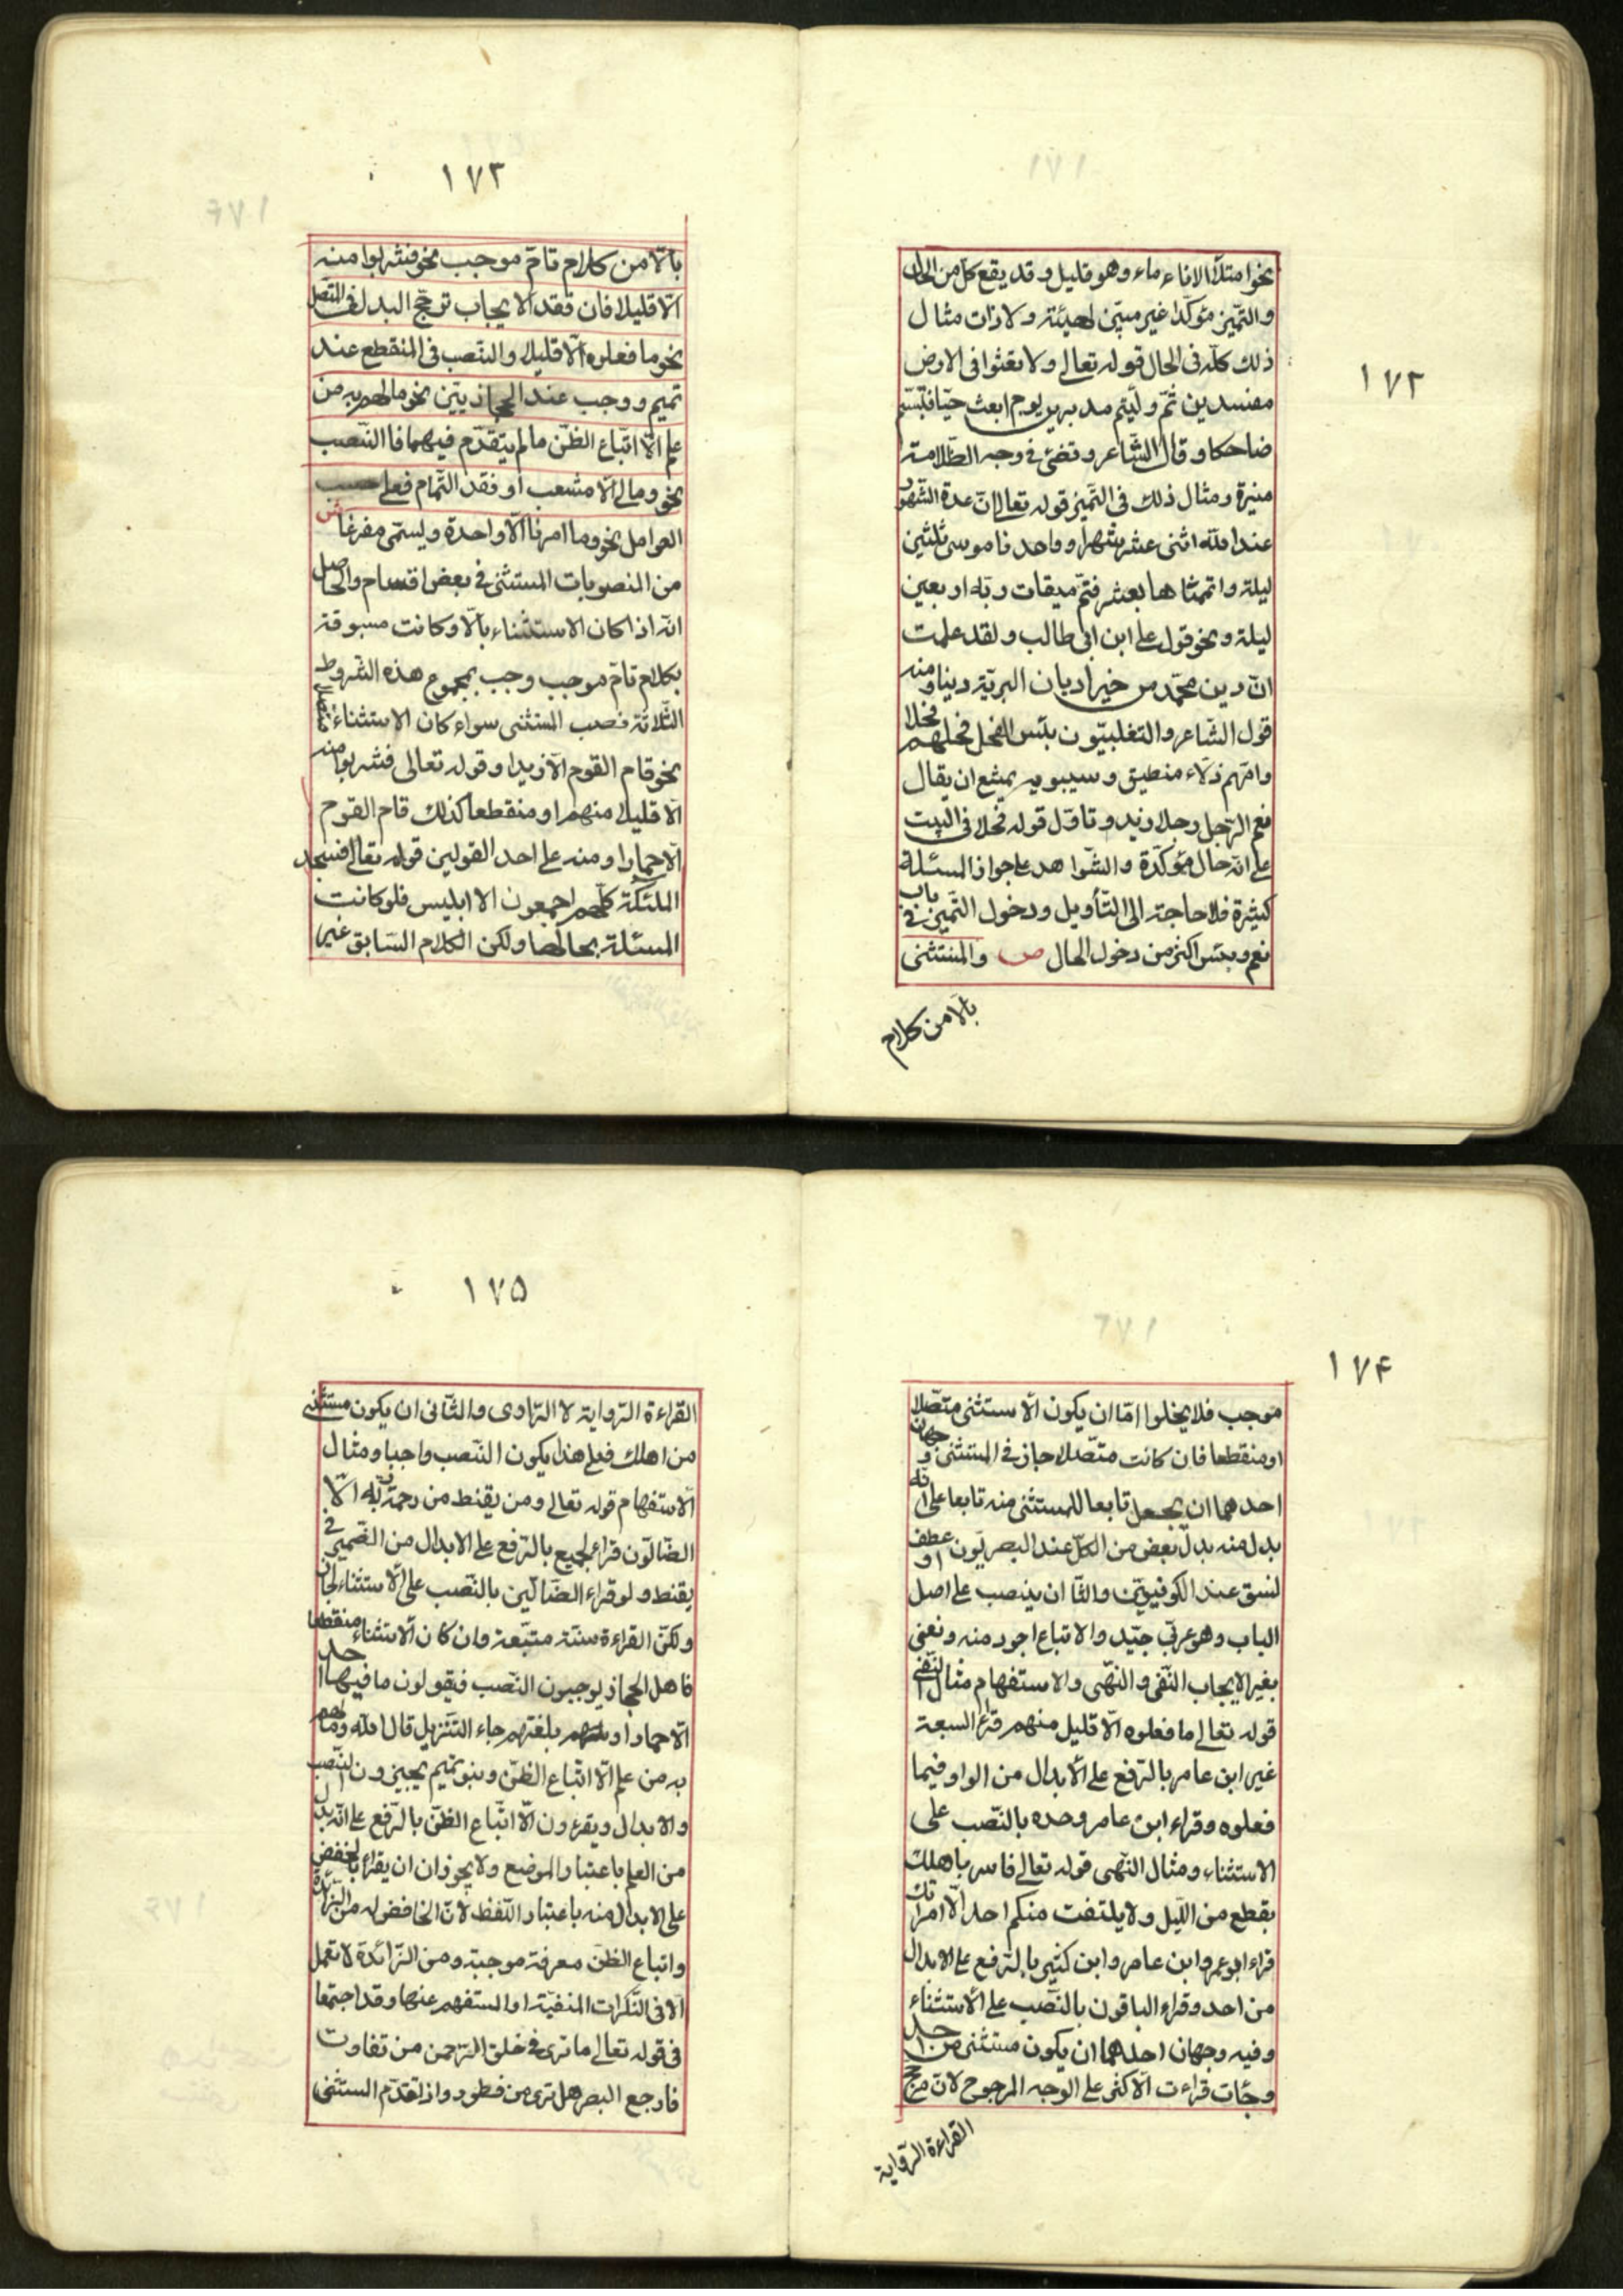 ١٧٢
نحو امتلأ الاناء ماء وهو قليل وقد يقع كل من الحال
والتميز مؤكدا غير مبين لهيئة ولا ذات مثال
ذلك كله فى الحال قوله تعالى ولا تعثوا فى الارض
مفسدين ثم وليتم مدبرين يوم ابعث حيا فتبسم
ضاحكا وقال الشاعر وتضئ فى وجه الظلامة
منيرة ومثال ذلك فى التميز قوله تعالى ان عدة الشهور
عند الله اثنى عشر شهرا وواعدنا موسى ثلثين
ليلة واتممناها بعشر فتم ميقات ربه اربعين
ليلة ونحو قول على ابن ابى طالب ولقد علمت
ان دين محمد من خير اديان البرية دينا ومنه
قول الشاعر والتغلبيون بئس الفحل فحلهم فحلا
وامهم زلاء منطيق وسيبويه يمنع ان يقال
نعم الرجل رجلا زيد وتاول قوله فحلا فى البيت
على انه حال مؤكدة والشواهد على جواز المسئلة
كثيرة فلا حاجة الى التأويل ودخول التميز فى باب
نعم وبئس اكثر من دخول الحال ص والمستثنى
بالا من كلام
١٧٣
بالا من كلام تام موجب نحو فشربوا منه
الا قليلا فان فقد الايجاب ترجح البدل فى المتصل
نحو ما فعلوه الا قليل والنصب فى المنقطع عند
تميم ووجب عند الحجازيين نحو ما لهم به من
علم الا اتباع الظن ما لم يتقدم فيهما فاالنصب
نحو ومالى الا مشعب او فقد التمام فعلى حسب
العوامل نحو وما امرنا الا واحدة ويسمى مفرغا ش
من المنصوبات المستثنى فى بعض اقسام والحاصل
انه اذا كان الاستثناء بالا وكانت مسبوقة
بكلام تام موجب وجب بمجموع هذه الشروط
الثلاثة نصب المستثنى سواء كان الاستثناء متصلا
نحو قام القوم الا زيدا وقوله تعالى فشربوا منه
الا قليلا منهم او منقطعا كذلك قام القوم
الا حمارا ومنه على احد القولين قوله تعالى فسجد
الملئكة كلهم اجمعون الا ابليس فلو كانت
المسئلة بحالها ولكن الكلام السابق غير
١٧۴
موجب فلا يخلوا اما ان يكون الاستثنى متصلا
او منقطعا فان كانت متصلا جاز فى المستثنى وجهان
احدهما ان يجعل تابعا للمستثنى منه تابعا على انه
بدل منه بدل بعض من الكل عند البصريون او عطف
لنسق عند الكوفيون والثا ان ينصب على اصل
الباب وهو عربى جيد والاتباع اجود منه ونعنى
بغير الايجاب النفى والنهى والاستفهام مثال النفى
قوله تعالى ما فعلوه الا قليل منهم قراء السبعة
غير ابن عامر بالرفع على الابدال من الواو فيما
فعلوه وقراء ابن عامر وحده بالنصب على
الاستثناء ومثال النهى قوله تعالى فاسر باهلك
بقطع من الليل ولا يلتفت منكم احد الا امراتك
قراء ابو عمر وابن عامر وابن كثير بالرفع على الابدال
من احد وقراء الباقون بالنصب على الاستثناء
وفيه وجهان احدهما ان يكون مستثنى من احد
وجئات قراءت الاكثر على الوجه المرجوح لان مرجح
القراءة الرواية
١٧۵
القراءة الرواية لا الراوى والثانى ان يكون مستثنى
من اهلك فعلى هذا يكون النصب واجبا ومثال
الاستفهام قوله تعالى ومن يقنط من رحمة ربه الا
الضالون قراء الجميع بالرفع على الابدال من الضمير فى
يقنط ولو قراء الضالين بالنصب على الاستثناء لجاز
ولكن القراءة سنة متبعة وان كان الاستثناء منقطعا
فاهل الحجاز يوجبون النصب فيقولون ما فيها احد
الا حمارا وبلغتهم جاء التنزيل قال الله وما لهم
به من علم الا اتباع الظن وبنو تميم يجيزون النصب
والابدال ويقرءون الا اتباع الظن بالرفع على انه بدل
من العلم باعتبار الموضع ولا يجوز ان ان يقراء بالخفض
على الابدال منه باعتبار اللفظ لان الخافض له من الزائدة
واتباع الظن معرفة موجبة ومن الزائدة لا تعمل
الا فى النكرات المنفية او المستفهم عنها وقد اجتمعا
فى قوله تعالى ما ترى فى خلق الرحمن من تفاوت
فارجع البصر هل ترى من فطور واذا تقدم المستثنى